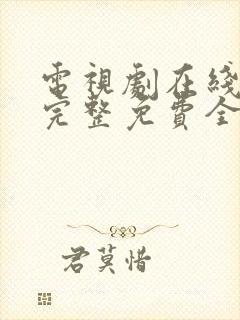 電視劇在綫
完整免費全
君莫惜